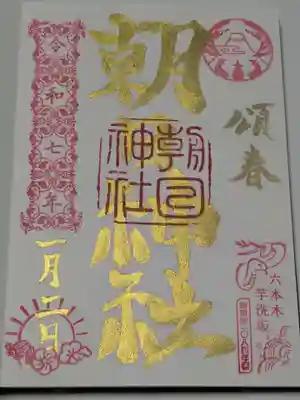 頌春
六本木
芋洗坂
朝日神社
朝日神社
令和七年
一月二日